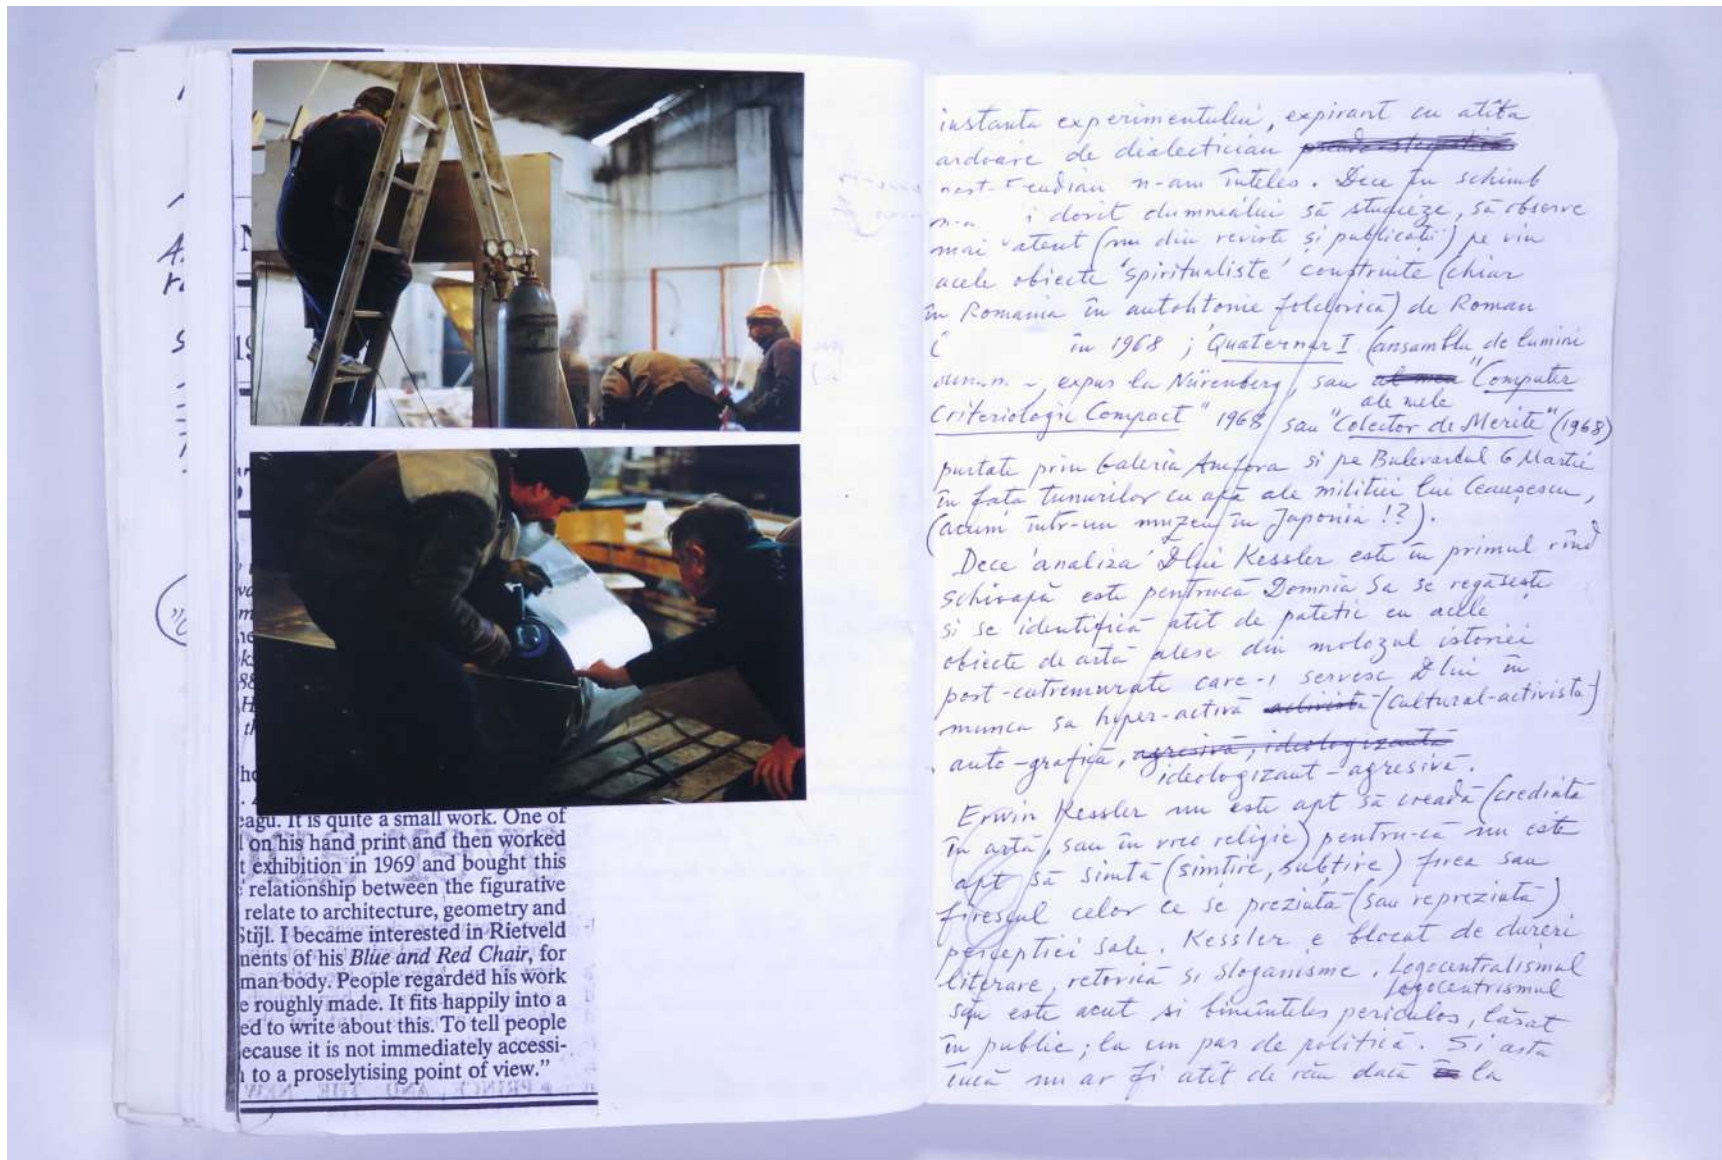 N
A.
r.
S
19
va
m
he
k
88
H
th
ho
eagu. It is quite a small work. One of
l on his hand print and then worked
t exhibition in 1969 and bought this
relationship between the figurative
relate to architecture, geometry and
Stijl. I became interested in Rietveld
nents of his Blue and Red Chair, for
man body. People regarded his work
e roughly made. It fits happily into a
ed to write about this. To tell people
ecause it is not immediately accessi-
n to a proselytising point of view."
PRINCE, AND THE NEW
instanta experimentului, expirant cu atîta
ardoare de dialectician
n-am înteles. Dece în schimb
i dorit dumnealui să studieze, să observe
mai atent (nu din reviste și publicații) pe viu
acele obiecte 'spiritualiste' construite (chiar
în Romania în autohtonie folclorică) de Roman
în 1968; 'Quaternar I (ansamblu de lumini
expus la Nürenberg, sau al meu "Computer
ale mele
Criteriologic Compact" 1968 sau "Colector de Merite" (1968)
purtate prin Galeria Amfora si pe Bulevardul 6 Martie
în fața tunurilor cu apă ale militiei lui Ceaușescu,
(acum într-un muzeu în Japonia !?).
Dece 'analiza' Dlui Kessler este în primul rînd
schioapă este pentrucă Domnia Sa se regăsește
si se identifică atît de patetic cu acele
obiecte de artă alese din molozul istoriei
post-cutremurate care-i servesc Dlui în
munca sa hiper-activă activistă (cultural-activistă)
auto-grafică, agresivă, ideologizantă
ideologizant-agresivă.
Erwin Kessler nu este apt să creadă (credintă
în artă, sau în vreo religie) pentru-că nu este
apt să simtă (simtire, subtire) firea sau
firescul celor ce se prezintă (sau reprezintă)
perceptiei sale. Kessler e blocat de dureri
literare, retorică si sloganisme. Logocentralismul
Logocentrismul
său este acut si bineînteles periculos, lăsat
în public; la un pas de politică. Si asta
încă nu ar fi atît de rău dacă la